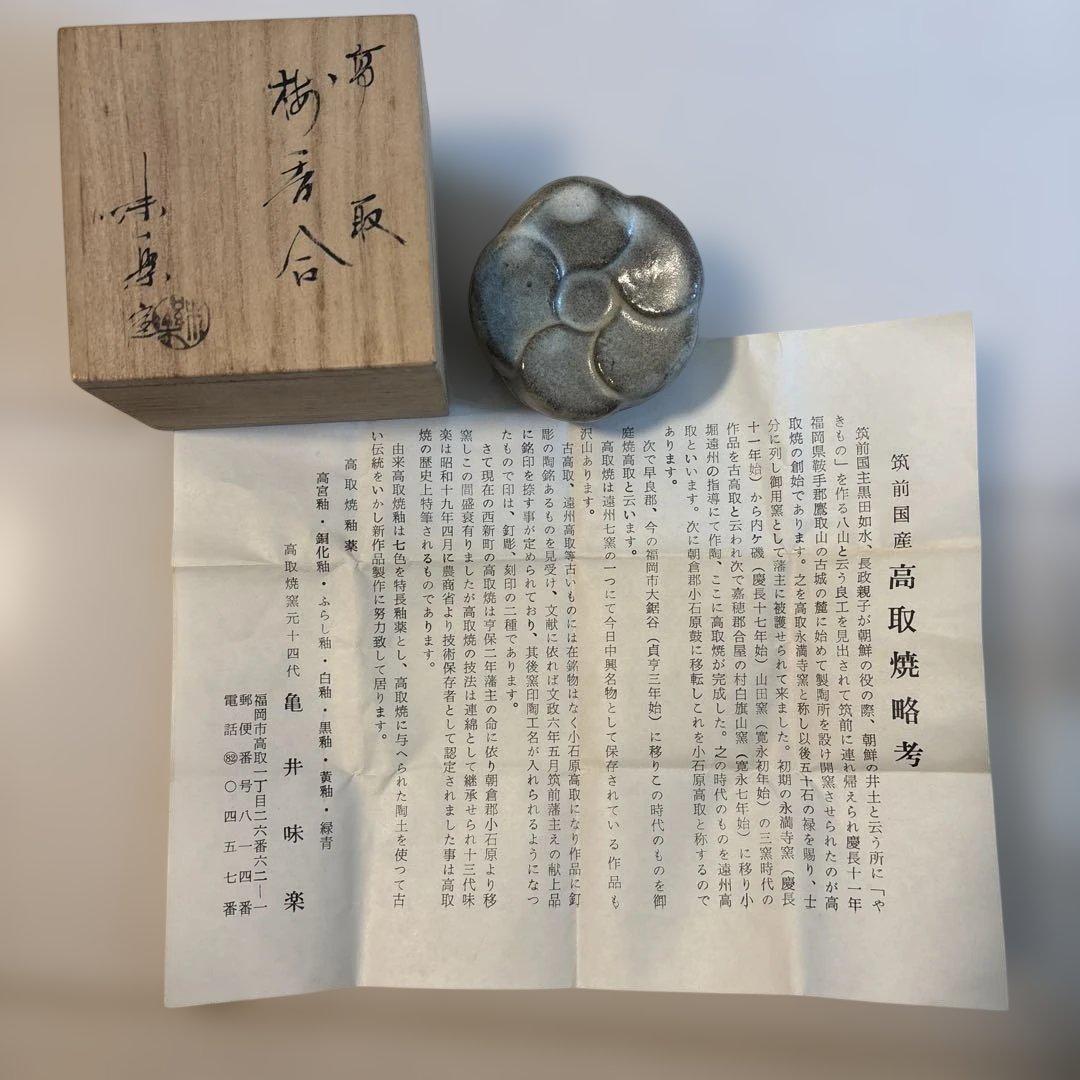 高取
梅香合
味楽窯
筑前国産 高取焼略考
筑前国主黒田如水、長政親子が朝鮮の役の際、朝鮮の井土と云う所に「や
きもの」を作る八山と云う良工を見出されて筑前に連れ帰えられ慶長十一年
福岡県鞍手郡鷹取山の古城の麓に始めて製陶所を設け開窯させられたのが高
取焼の創始であります。之を高取永満寺窯と称し以後五十石の禄を賜り、士
分に列し御用窯として藩主に被護せられて来ました。初期の永満寺窯（慶長
十一年始）から内ケ磯（慶長十七年始）山田窯（寛永初年始）の三窯時代の
作品を古高取と云われ次で嘉穂郡合屋の村白旗山窯（寛永七年始）に移り小
堀遠州の指導にて作陶、ここに高取焼が完成した。之の時代のものを遠州高
取といいます。次に朝倉郡小石原鼓に移転しこれを小石原高取と称するので
あります。
次で早良郡、今の福岡市大鋸谷（貞亨三年始）に移りこの時代のものを御
庭焼高取と云います。
高取焼は遠州七窯の一つにて今日中興名物として保存されている作品も
沢山あります。
古高取、遠州高取等古いものには在銘物はなく小石原高取になり作品に釘
彫の陶銘あるものを見受け、文献に依れば文政六年五月筑前藩主えの献上品
に銘印を捺す事が定められており、其後窯印陶工名が入れられるようになっ
たもので印は、釘彫、刻印の二種であります。
さて現在の西新町の高取焼は亨保二年藩主の命に依り朝倉郡小石原より移
窯しこの間盛衰有りましたが高取焼の技法は連綿として継承せられ十三代味
楽は昭和十九年四月に農商省より技術保存者として認定されました事は高取
焼の歴史上特筆されるものであります。
由来高取焼釉は七色を特長釉薬とし、高取焼に与へられた陶土を使つて古
い伝統をいかし新作品製作に努力致して居ります。
高取焼釉薬
高宮釉・銅化釉・ふらし釉・白釉・黒釉・黄釉・緑青
高取焼窯元十四代 亀井味楽
福岡市高取一丁目二六番六二―一
郵便番号八一四番
電話㉂〇四五七番